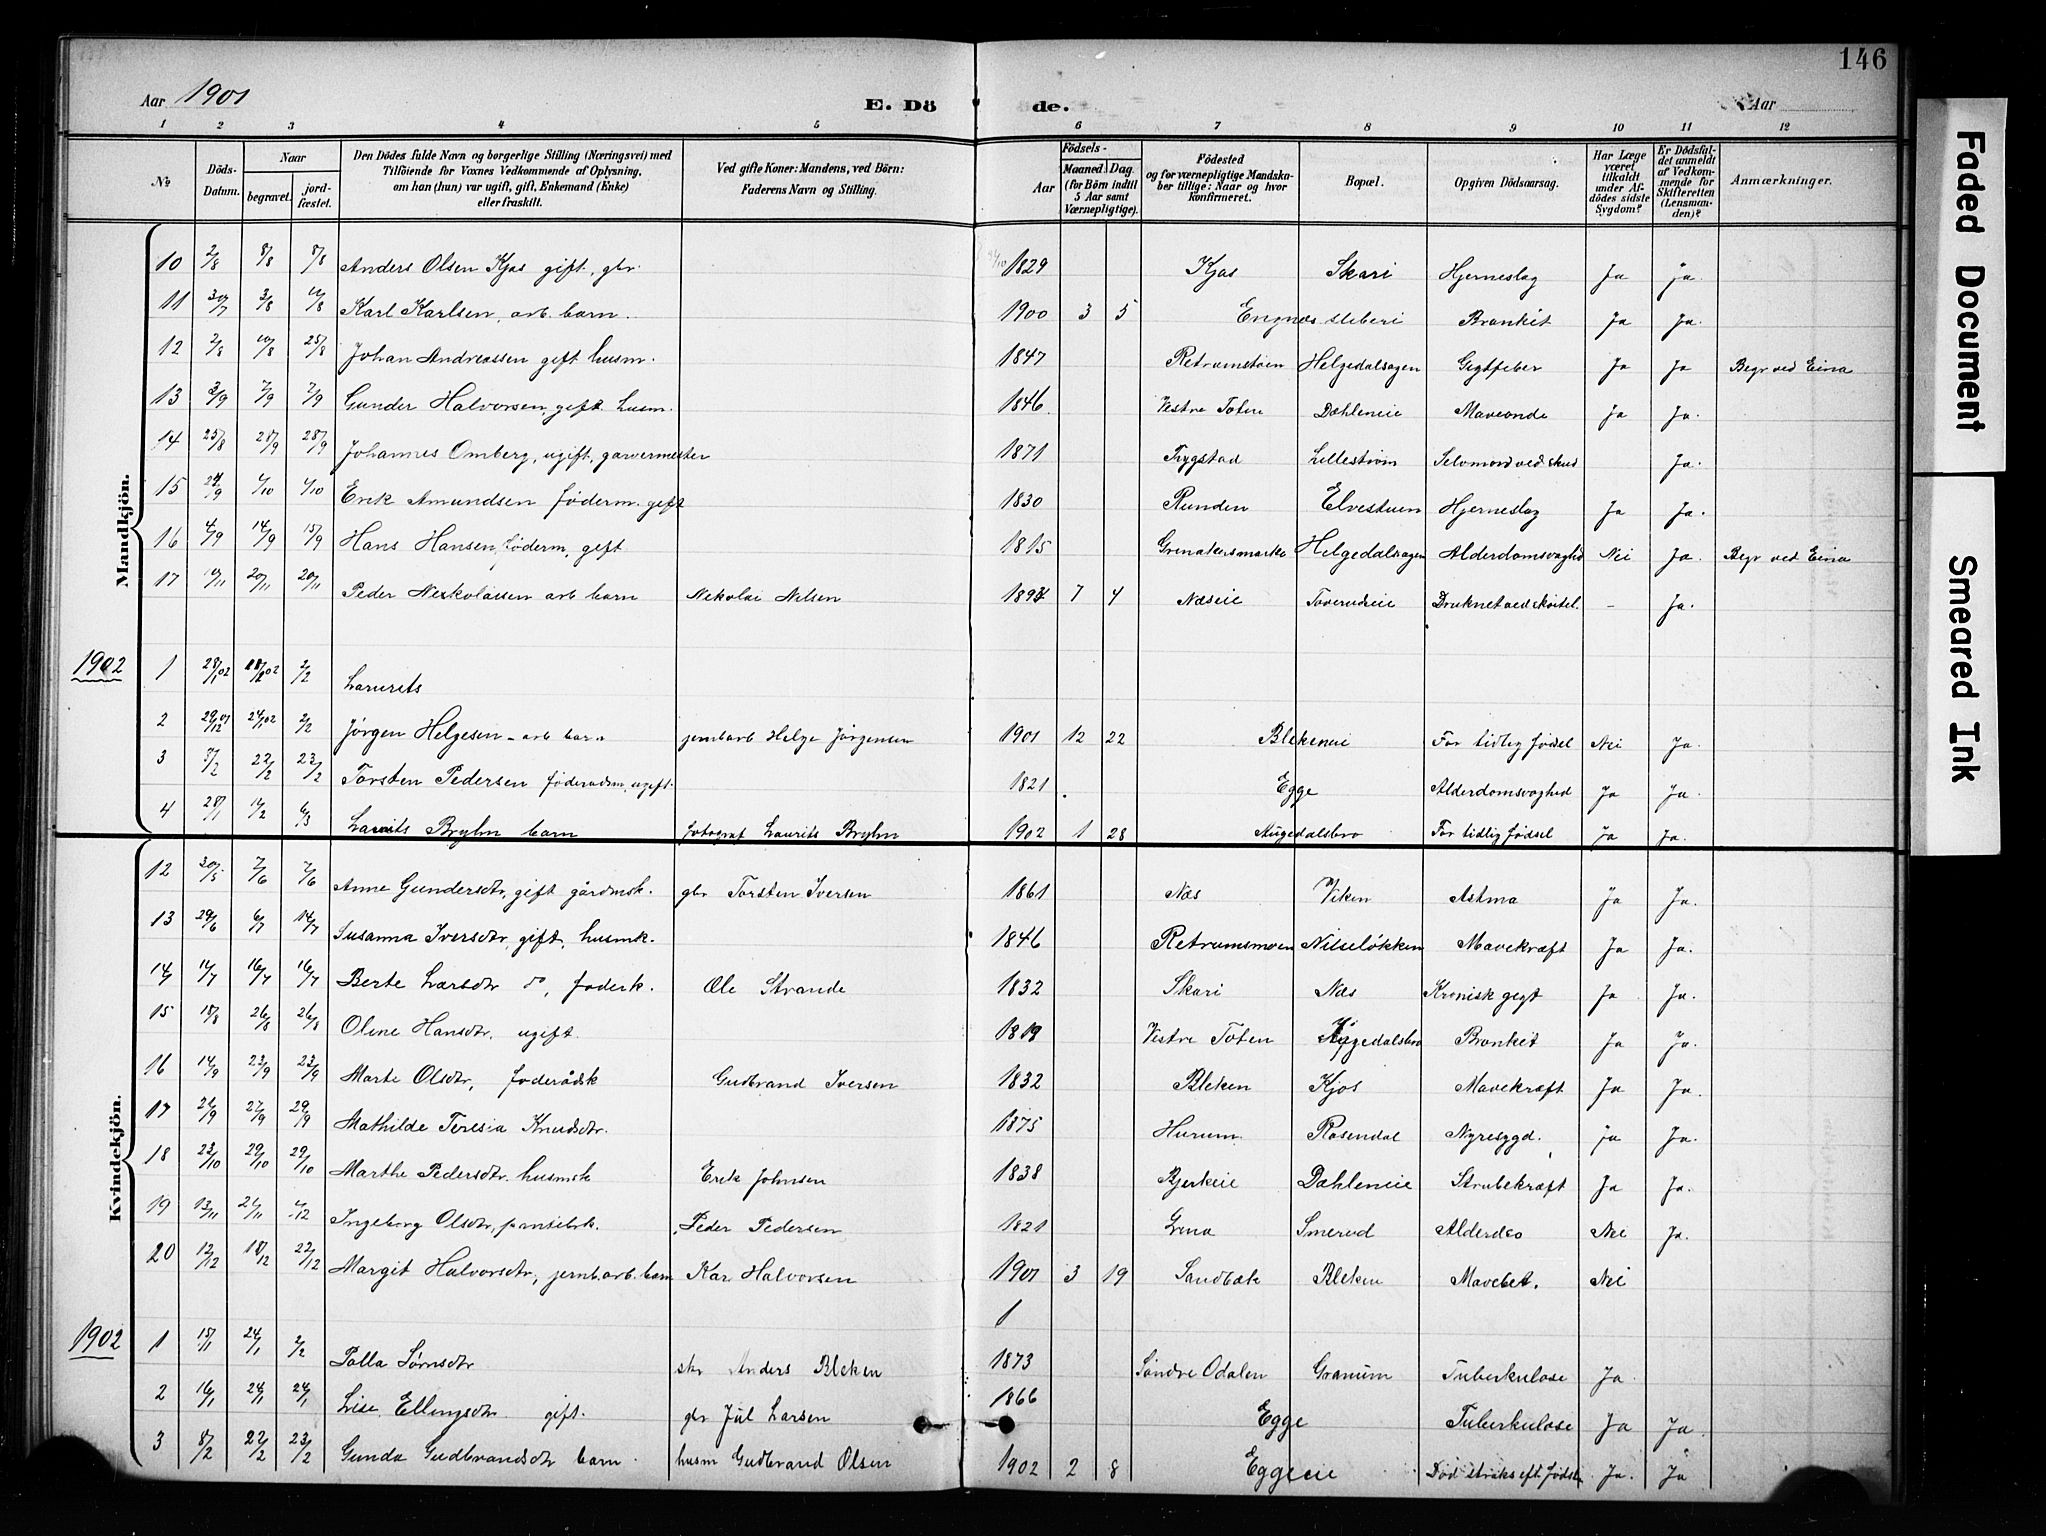 146
Aar 1901
E. Dö de.
Aar
1 2 3 4 5 6 7 8 9 10 11 12
No
Döds-Datum.
Naar begravet. jord-fæstet.
Den Dödes fulde Navn og borgerlige Stilling (Næringsvei) med Tilföiende for Voxnes Vedkommende af Oplysning, om han (hun) var ugift, gift, Enkemand (Enke) eller fraskilt.
Ved gifte Koner: Mandens, ved Börn: Faderens Navn og Stilling.
Födsels-
Aar Maaned. Dag. (for Börn indtil 5 Aar samt Værnepligtige).
Födested og for værnepligtige Mandska-ber tillige: Naar og hvor konfirmeret.
Bopæl.
Opgiven Dödsaarsag.
Har Læge været tilkaldt under Af-dödes sidste Sygdom?
Er Dödsfal-det anmeldt af Vedkom-mende for Skifteretten (Lensman-den)?
Anmærkninger.
Mandkjön.
10 2/8 8/8 8/8 Anders Olsen Kjos gift, gbr. 1829 Kjos Skari Hjerneslag Ja ja.
11 30/7 3/8 Karl Karlsen, arb. barn. 1900 3 5 Engnæs sliberi Bronkit Ja Ja.
12 2/8 10/8 25/8 Johan Andreassen gift husm. 1847 Retrumstøen Helgedalsagen Gigtfeber Ja Ja Begr ved Eina
13 3/9 7/9 7/9 Gunder Halvorsen, gift husm. 1846 Vestre Toten Dæhleneie Maveonde Ja Ja.
14 25/8 28/9 28/9 Johannes Omberg, ugift, garvermester 1871 Trygstad Lillestrøm Selvmord ved skud Ja.
15 24/9 Erik Amundsen føderm. gift 1830 Runden Elvestuen Hjerneslag Ja Ja.
16 4/9 14/9 15/9 Hans Hansen, føderm, gift 1815 Grinakersmarke Helgedalsagen Alderdomsvaghed Nei Ja. Begr ved Eina
17 10/11 20/11 20/11 Peder Nikolaisen arb barn Nekolai Nilsen 7 4 Næseie Toverudeie Druknet ved skøitel. - Ja.
1902
1 28/1 02 2/2 Laurits
2 29/12 01 24/1 02 2/2 Jørgen Helgesen - arb barn jernbarb Helge Jørgensen 1901 12 22 Blekeneie For tidlig fødsel Nei Ja.
3 22/2 23/2 Torsten Pedersen føderaadsm, ugift. 1821 Egge Alderdomsvaghed Ja Ja.
4 28/1 Laurits Bryhn barn fotograf Laurits Bryhn 1902 1 28 Augedalsbro For tidlig fødsel Ja Ja.
Kvindekjön.
12 30/5 7/6 7/6 Anne Gundersdtr, gift gårdmsk. gbr Torsten Iversen 1861 Næs Viken Astma Ja Ja.
13 29/6 6/7 14/7 Susanna Iversdtr, gift, husmk. 1846 Retrumsmoen Nilseløkken Mavekræft Ja Ja.
14 11/7 16/7 16/7 Berte Larsdtr do, foderk. Ole Strande 1832 Skari Næs Kronisk gigt Ja Ja.
15 18/8 26/8 26/8 Oline Hansdtr. ugift. 1819 Vestre Toten Augedalsbro Bronkit Ja Ja.
16 14/9 23/9 23/9 Marte Olsdtr, foderådsk Gudbrand Iversen 1832 Bleken Kjos Mavekræft Ja Ja.
17 21/9 27/9 29/9 Mathilde Teresia Knudsdtr. 1875 Hurum Rosendal Nyresygd. ja Ja.
18 23/10 29/10 29/10 Marthe Pedersdtr. husmsk Erik Johnsen 1838 Bjerkeie Dæhleneie Strubekræft Ja Ja.
19 13/11 21/11 Ingeborg Olsdtr, pensibrk. Peder Pedersen 1821 Grina Smerud Alderdso Nei Ja.
20 12/12 18/12 22/12 Margit Halvorsdtr, jernb.arb. barn Kar Halvorsen 1901 3 19 Sandbæk Bleken Mavebet. Nei
1
1902
1 15/1 24/1 2/2 Palla Sørnsdtr skr Anders Bleken 1873 Søndre Odalen Granum Tuberkulose Ja
2 16/1 24/1 24/1 Lise Ellingsdtr gift. gbr Jul Larsen 1866 Egge Tuberkulose Ja Ja
3 8/2 22/2 23/2 Gunda Gudbrandsdtr barn. husm Gudbrand Olsen 1902 2 8 Eggeeie Død straks eft. fødsln Ja. Ja
Faded Document
Smeared Ink